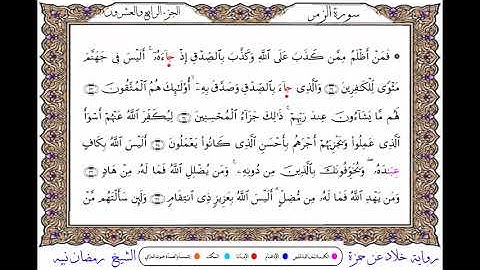 سورة الزمر الجزء الرابع والعشرون
۞ فَمَنْ أَظْلَمُ مِمَّن كَذَبَ عَلَى اللَّهِ وَكَذَّبَ بِالصِّدْقِ إِذْ جَآءَهُۥٓ ۚ أَلَيْسَ فِى جَهَنَّمَ
مَثْوًى لِّلْكَٰفِرِينَ ٣٢ وَالَّذِى جَآءَ بِالصِّدْقِ وَصَدَّقَ بِهِۦٓ ۙ أُوْلَٰٓئِكَ هُمُ الْمُتَّقُونَ ٣٣
لَهُم مَّا يَشَآءُونَ عِندَ رَبِّهِمْ ۚ ذَٰلِكَ جَزَآءُ الْمُحْسِنِينَ ٣٤ لِيُكَفِّرَ اللَّهُ عَنْهُمْ أَسْوَأَ
الَّذِى عَمِلُواْ وَيَجْزِيَهُمْ أَجْرَهُم بِأَحْسَنِ الَّذِى كَانُواْ يَعْمَلُونَ ٣٥ أَلَيْسَ اللَّهُ بِكَافٍ
عِبَٰدَهُۥ ۖ وَيُخَوِّفُونَكَ بِالَّذِينَ مِن دُونِهِۦ ۚ وَمَن يُضْلِلِ اللَّهُ فَمَا لَهُۥ مِنْ هَادٍ ٣٦
وَمَن يَهْدِ اللَّهُ فَمَا لَهُۥ مِن مُّضِلٍّ ۗ أَلَيْسَ اللَّهُ بِعَزِيزٍ ذِى انتِقَامٍ ٣٧ وَلَئِن سَأَلْتَهُم مَّنْ
رواية خلاد عن حمزة الشيخ رمضان نبيه